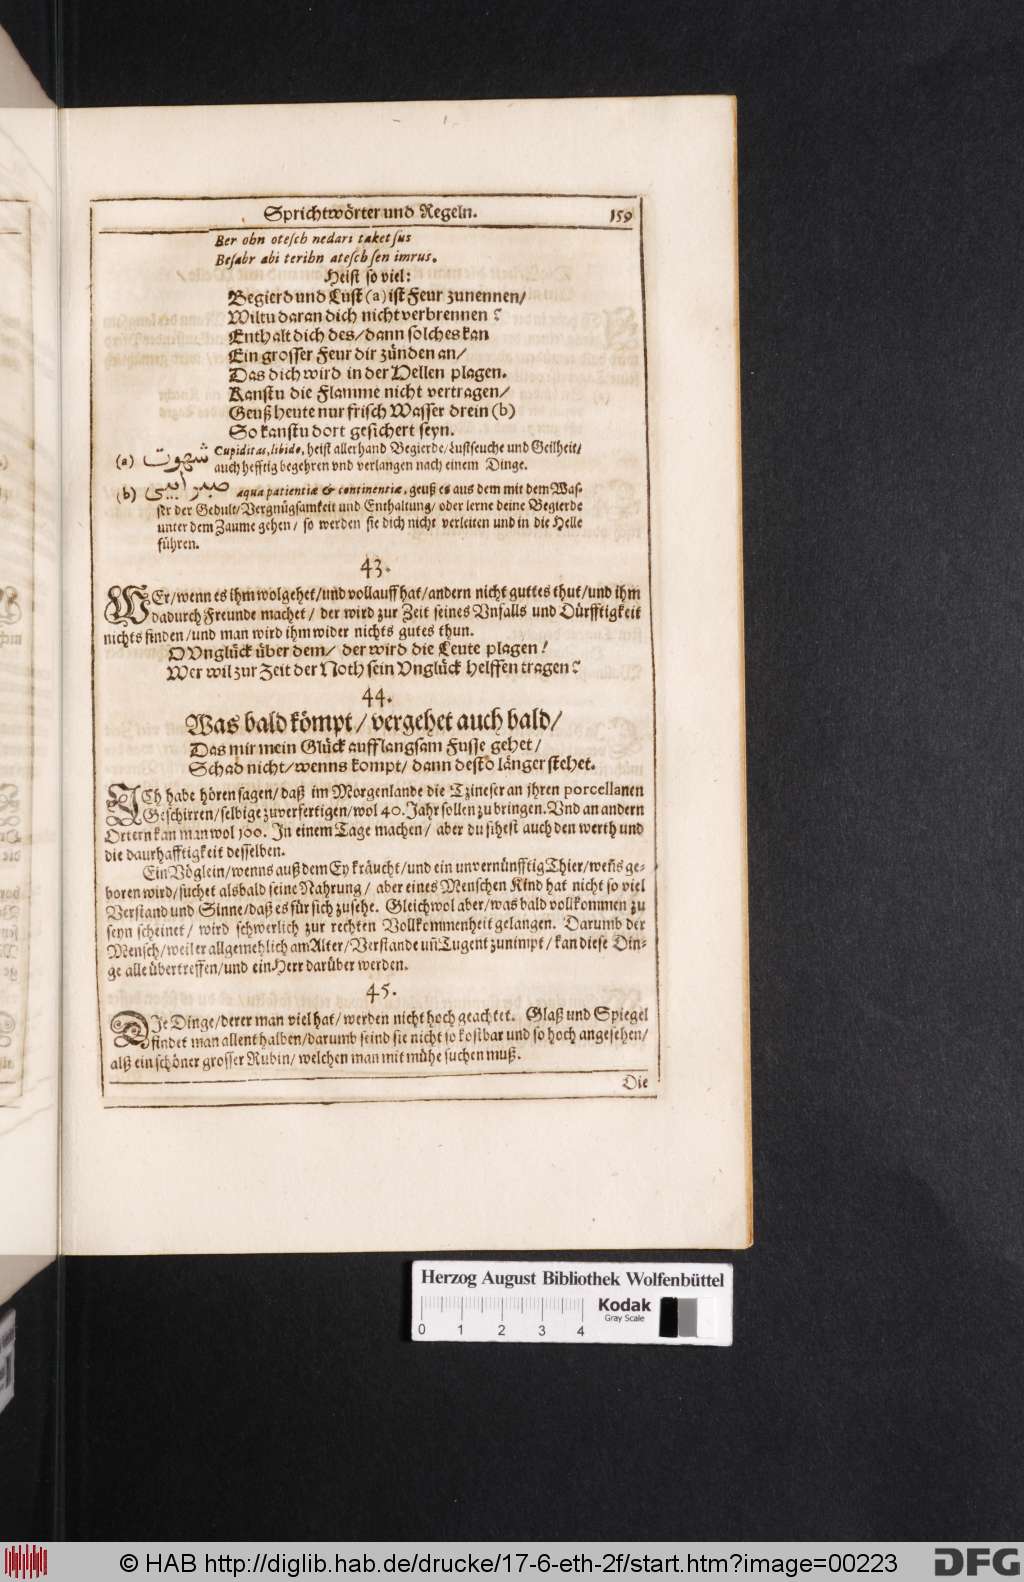 Sprichtwörter und Regeln. 159
Ber ohn otesch nedari taket sus
Besabr abi teribn atesch sen imrus.
Heist so viel:
Begierd und Lust (a) ist Feur zunennen/
Wiltu daran dich nicht verbrennen?
Enthalt dich des/ dann solches kan
Ein grosser Feur dir zünden an/
Das dich wird in der Hellen plagen.
Kanstu die Flamme nicht vertragen/
Geuß heute nur frisch Wasser drein (b)
So kanstu dort gesichert seyn.
(a) شهوت Cupiditas, libido, heist allerhand Begierde/ Lustseuche und Geilheit/
auch hefftig begehren vnd verlangen nach einem Dinge.
(b) صبر آبی aqua patientiæ & continentiæ, geuß es aus dem mit dem Was-
ser der Gedult/ Vergnügsamkeit und Enthaltung/ oder lerne deine Begierde
unter dem Zaume gehen/ so werden sie dich nicht verleiten und in die Helle
führen.
43.
WEr/ wenn es ihm wolgehet/ und vollauff hat/ andern nicht guttes thut/ und ihm
dadurch Freunde machet/ der wird zur Zeit seines Vnfalls und Dürfftigkeit
nichts finden/ und man wird ihm wider nichts gutes thun.
O Vnglück über dem/ der wird die Leute plagen!
Wer wil zur Zeit der Noth sein Vnglück helffen tragen?
44.
Was bald kömpt/ vergehet auch bald/
Das mir mein Glück auff langsam Fusse gehet/
Schad nicht/ wenns kompt/ dann desto länger stehet.
ICh habe hören sagen/ daß im Morgenlande die Tzineser an jhren porcellanen
Geschirren/ selbige zuverfertigen/ wol 40. Jahr sollen zu bringen. Vnd an andern
Ortern kan man wol 100. In einem Tage machen/ aber du sihest auch den werth und
die daurhafftigkeit desselben.
Ein Vöglein/ wenns auß dem Ey kräucht/ und ein unvernünfftig Thier/ weñs ge-
boren wird/ suchet alsbald seine Nahrung/ aber eines Menschen Kind hat nicht so viel
Verstand und Sinne/ daß es für sich zusehe. Gleichwol aber/ was bald vollkommen zu
seyn scheinet/ wird schwerlich zur rechten Vollkommenheit gelangen. Darumb der
Mensch/ weil er allgemehlich am Alter/ Verstande uñ Tugent zunimpt/ kan diese Din-
ge alle übertreffen/ und ein Herr darüber werden.
45.
DIe Dinge/ derer man viel hat/ werden nicht hoch geachtet. Glaß und Spiegel
findet man allenthalben/ darumb seind sie nicht so kostbar und so hoch angesehen/
alß ein schöner grosser Rubin/ welchen man mit mühe suchen muß.
Die
Herzog August Bibliothek Wolfenbüttel
0 1 2 3 4
Kodak
Gray Scale
© HAB http://diglib.hab.de/drucke/17-6-eth-2f/start.htm?image=00223
DFG